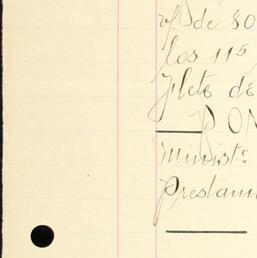 v/ de 80
los 115
Flete de
PON
Minist:
Prestam